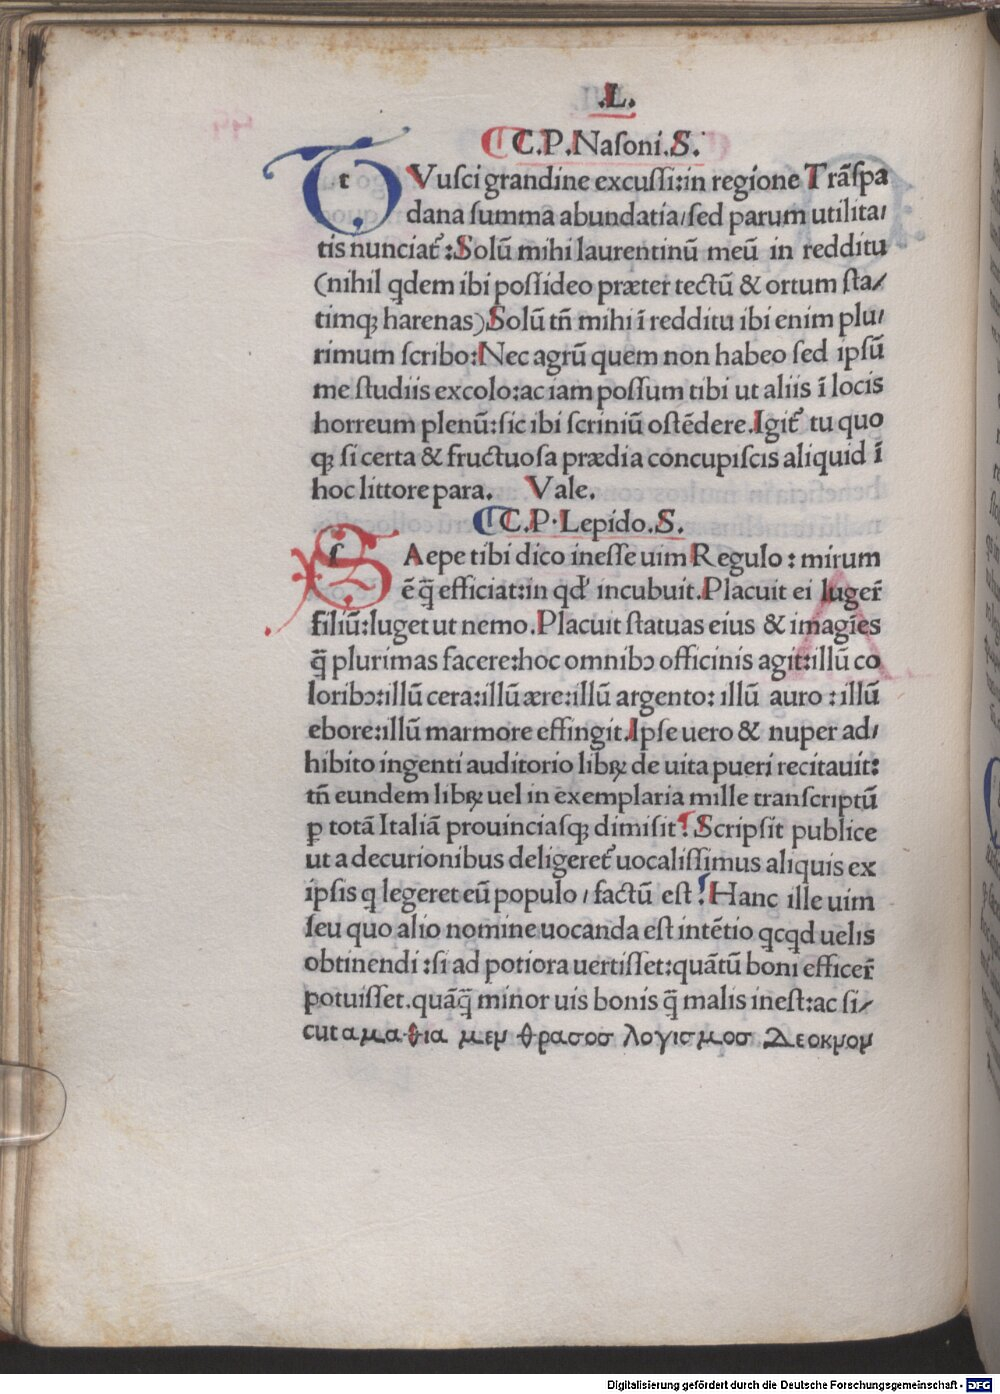 .L.
C.P.Naſoni.S.
t Vuſci grandine excuſſi:in regione Trãſpa
dana ſumma abundatia/ſed parum utilita/
tis nunciat᷑:Solũ mihi laurentinũ meũ in redditu
(nihil qdem ibi poſſideo præter tectũ & ortum ſta/
timꝙ harenas)Solũ tñ mihi ĩ redditu ibi enim plu/
rimum ſcribo:Nec agrũ quem non habeo ſed ipſũ
me ſtudiis excolo:ac iam poſſum tibi ut aliis ĩ locis
horreum plenũ:ſic ibi ſcriniũ oſtẽdere.Igit᷑ tu quo
ꝙ ſi certa & fructuoſa prædia concupiſcis aliquid ĩ
hoc littore para. Vale.
C.P.Lepido.S.
ſ Aepe tibi dico ineſſe uim Regulo : mirum
ẽ q̃ efficiat:in qd' incubuit.Placuit ei luger̃
filiũ:luget ut nemo.Placuit ſtatuas eius & imagĩes
q̃ plurimas facere:hoc omnibɔ officinis agit:illũ co
loribɔ:illũ cera:illũ ære:illũ argento: illũ auro : illũ
ebore:illũ marmore effingit.Ipſe uero & nuper ad/
hibito ingenti auditorio libꝝ de uita pueri recitauit:
tñ eundem libꝝ uel in exemplaria mille tranſcriptũ
ꝑ totã Italiã prouinciaſꝙ dimiſit:Scripſit publice
ut a decurionibus deligeret᷑ uocaliſſimus aliquis ex
ipſis q legeret eũ populo / factũ eſt:Hanc ille uim
ſeu quo alio nomine uocanda eſt intẽtio qcqd uelis
obtinendi :ſi ad potiora uertiſſet:quãtũ boni efficer̃
potuiſſet.quãq̃ minor uis bonis q̃ malis ineſt:ac ſi/
cut αμαθια μεν θρασοσ λογισμοσ Δεοκνον
Digitalisierung gefördert durch die Deutsche Forschungsgemeinschaft - DFG